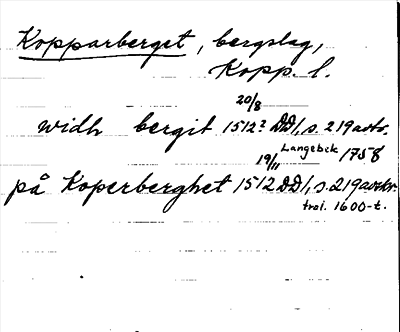 Kopparberget, bergslag,
Kopp. l.
20/8
widh bergit 1512? DD1, s. 219 avtr.
Langebek 1758
19/11
på Koperberghet 1512 DD1, s. 219 avskr.
trol. 1600-t.